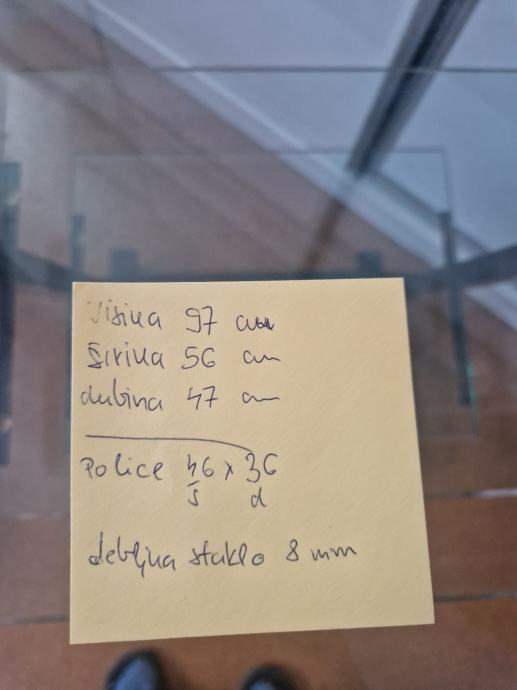 Visina 97 cm
Širina 56 cm
dubina 47 cm
Police 46 x 36
š d
debljina staklo 8 mm